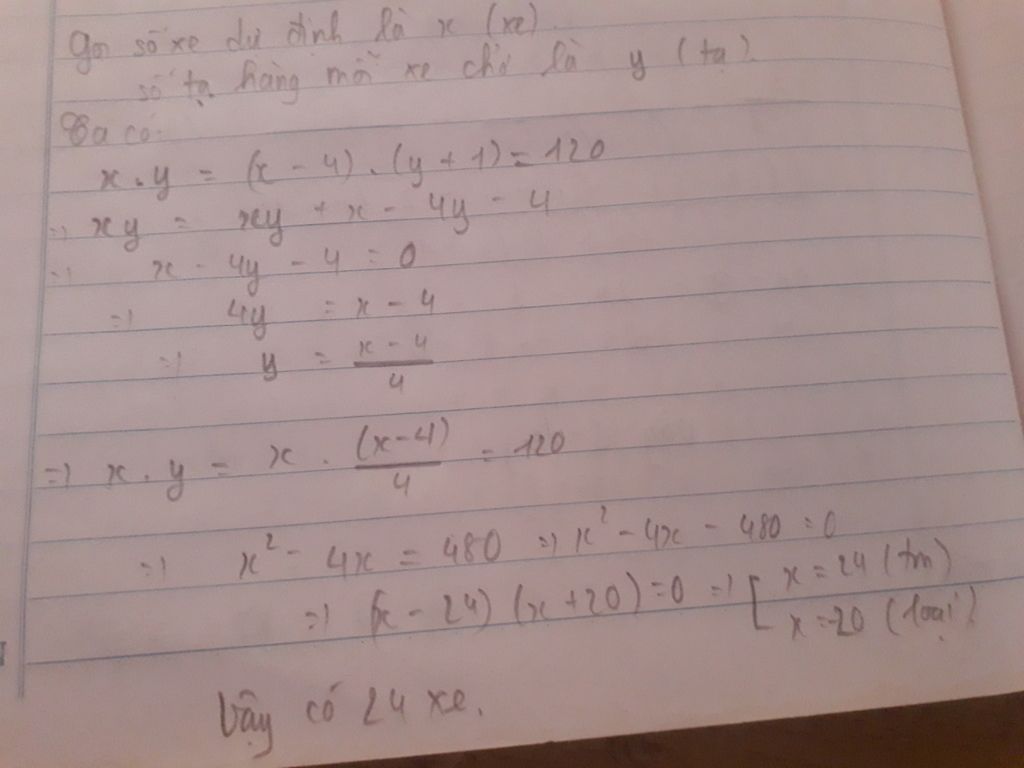 Gọi số xe dự định là x (xe)
số tạ hàng mỗi xe chở là y (tạ)
Ta có:
x . y = (x - 4) . (y + 1) = 120
=> xy = xy + x - 4y - 4
=> x - 4y - 4 = 0
=> 4y = x - 4
=> y = \frac{x - 4}{4}
=> x . y = x . \frac{(x-4)}{4} = 120
=> x² - 4x = 480 => x² - 4x - 480 = 0
=> (x - 24) (x + 20) = 0 => [ x = 24 (tm)
x = -20 (loại)
Vậy có 24 xe.